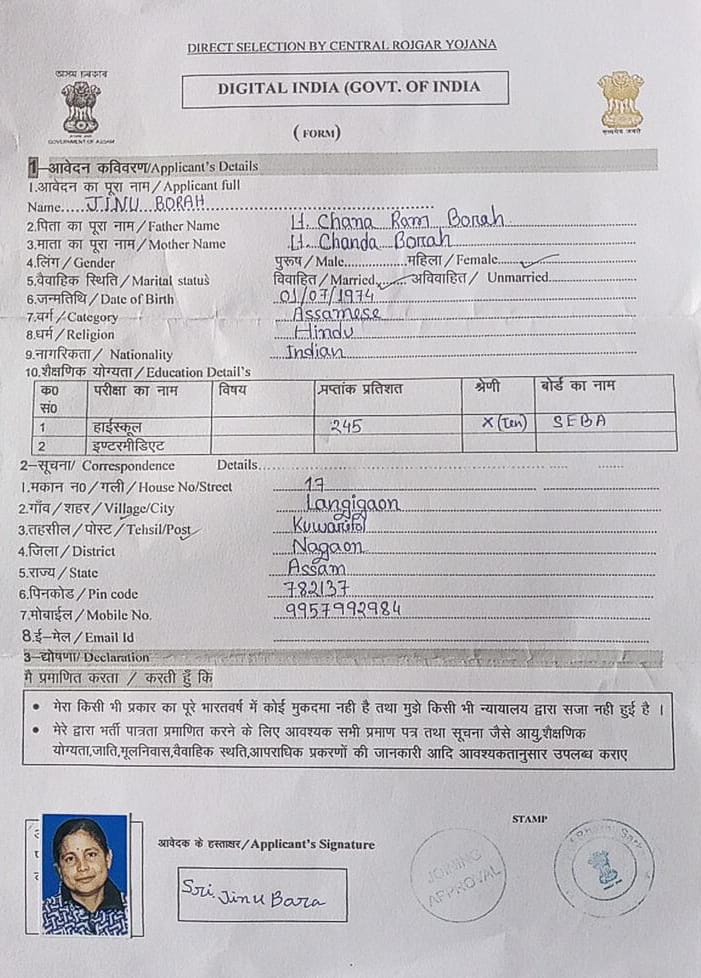 DIRECT SELECTION BY CENTRAL ROJGAR YOJANA
DIGITAL INDIA (GOVT. OF INDIA
(FORM)
GOVERNMENT OF ASSAM
सत्यमेव जयते
1–आवेदन कविवरण/Applicant's Details
1.आवेदन का पूरा नाम/Applicant full
Name.....JINU BORAH
2.पिता का पूरा नाम/Father Name Lt. Chana Ram Borah
3.माता का पूरा नाम/Mother Name Lt. Chanda Borah
4.लिंग/Gender पुरूष/Male...............महिला/Female ✓
5.वैवाहिक स्थिति/Marital status विवाहित/Married ✓ अविवाहित/ Unmarried
6.जन्मतिथि/Date of Birth 01/07/1974
7.वर्ग/Category Assamese
8.धर्म/Religion Hindu
9.नागरिकता/ Nationality Indian
10.शैक्षणिक योग्यता/Education Detail's
क0 सं0 परीक्षा का नाम विषय प्राप्तांक प्रतिशत श्रेणी बोर्ड का नाम
1 हाईस्कूल 245 X (Ten) SEBA
2 इण्टरमीडिएट
2–सूचना/ Correspondence Details
1.मकान न0/गली/House No/Street 17
2.गाँव/शहर/Village/City Langigaon
3.तहसील/पोस्ट/Tehsil/Post ✓ Kuwaritol
4.जिला/District Nagaon
5.राज्य/State Assam
6.पिनकोड/Pin code 782137
7.मोबाईल/Mobile No. 9957992984
8.ई–मेल/Email Id
3–द्योषणा/Declaration
मै प्रमाणित करता / करती हुँ कि
• मेरा किसी भी प्रकार का पूरे भारतवर्ष में कोई मुकदमा नही है तथा मुझे किसी भी न्यायालय द्वारा सजा नही हुई है ।
• मेरे द्वारा भर्ती पात्रता प्रमाणित करने के लिए आवश्यक सभी प्रमाण पत्र तथा सूचना जैसे आयु,शैक्षणिक
योग्यता,जाति,मूलनिवास,वैवाहिक स्थति,आपराधिक प्रकरणों की जानकारी आदि आवश्यकतानुसार उपलब्ध कराए
STAMP
आवेदक के हस्ताक्षर/Applicant's Signature
Sri. Jinu Bara
JOINING APPROVAL